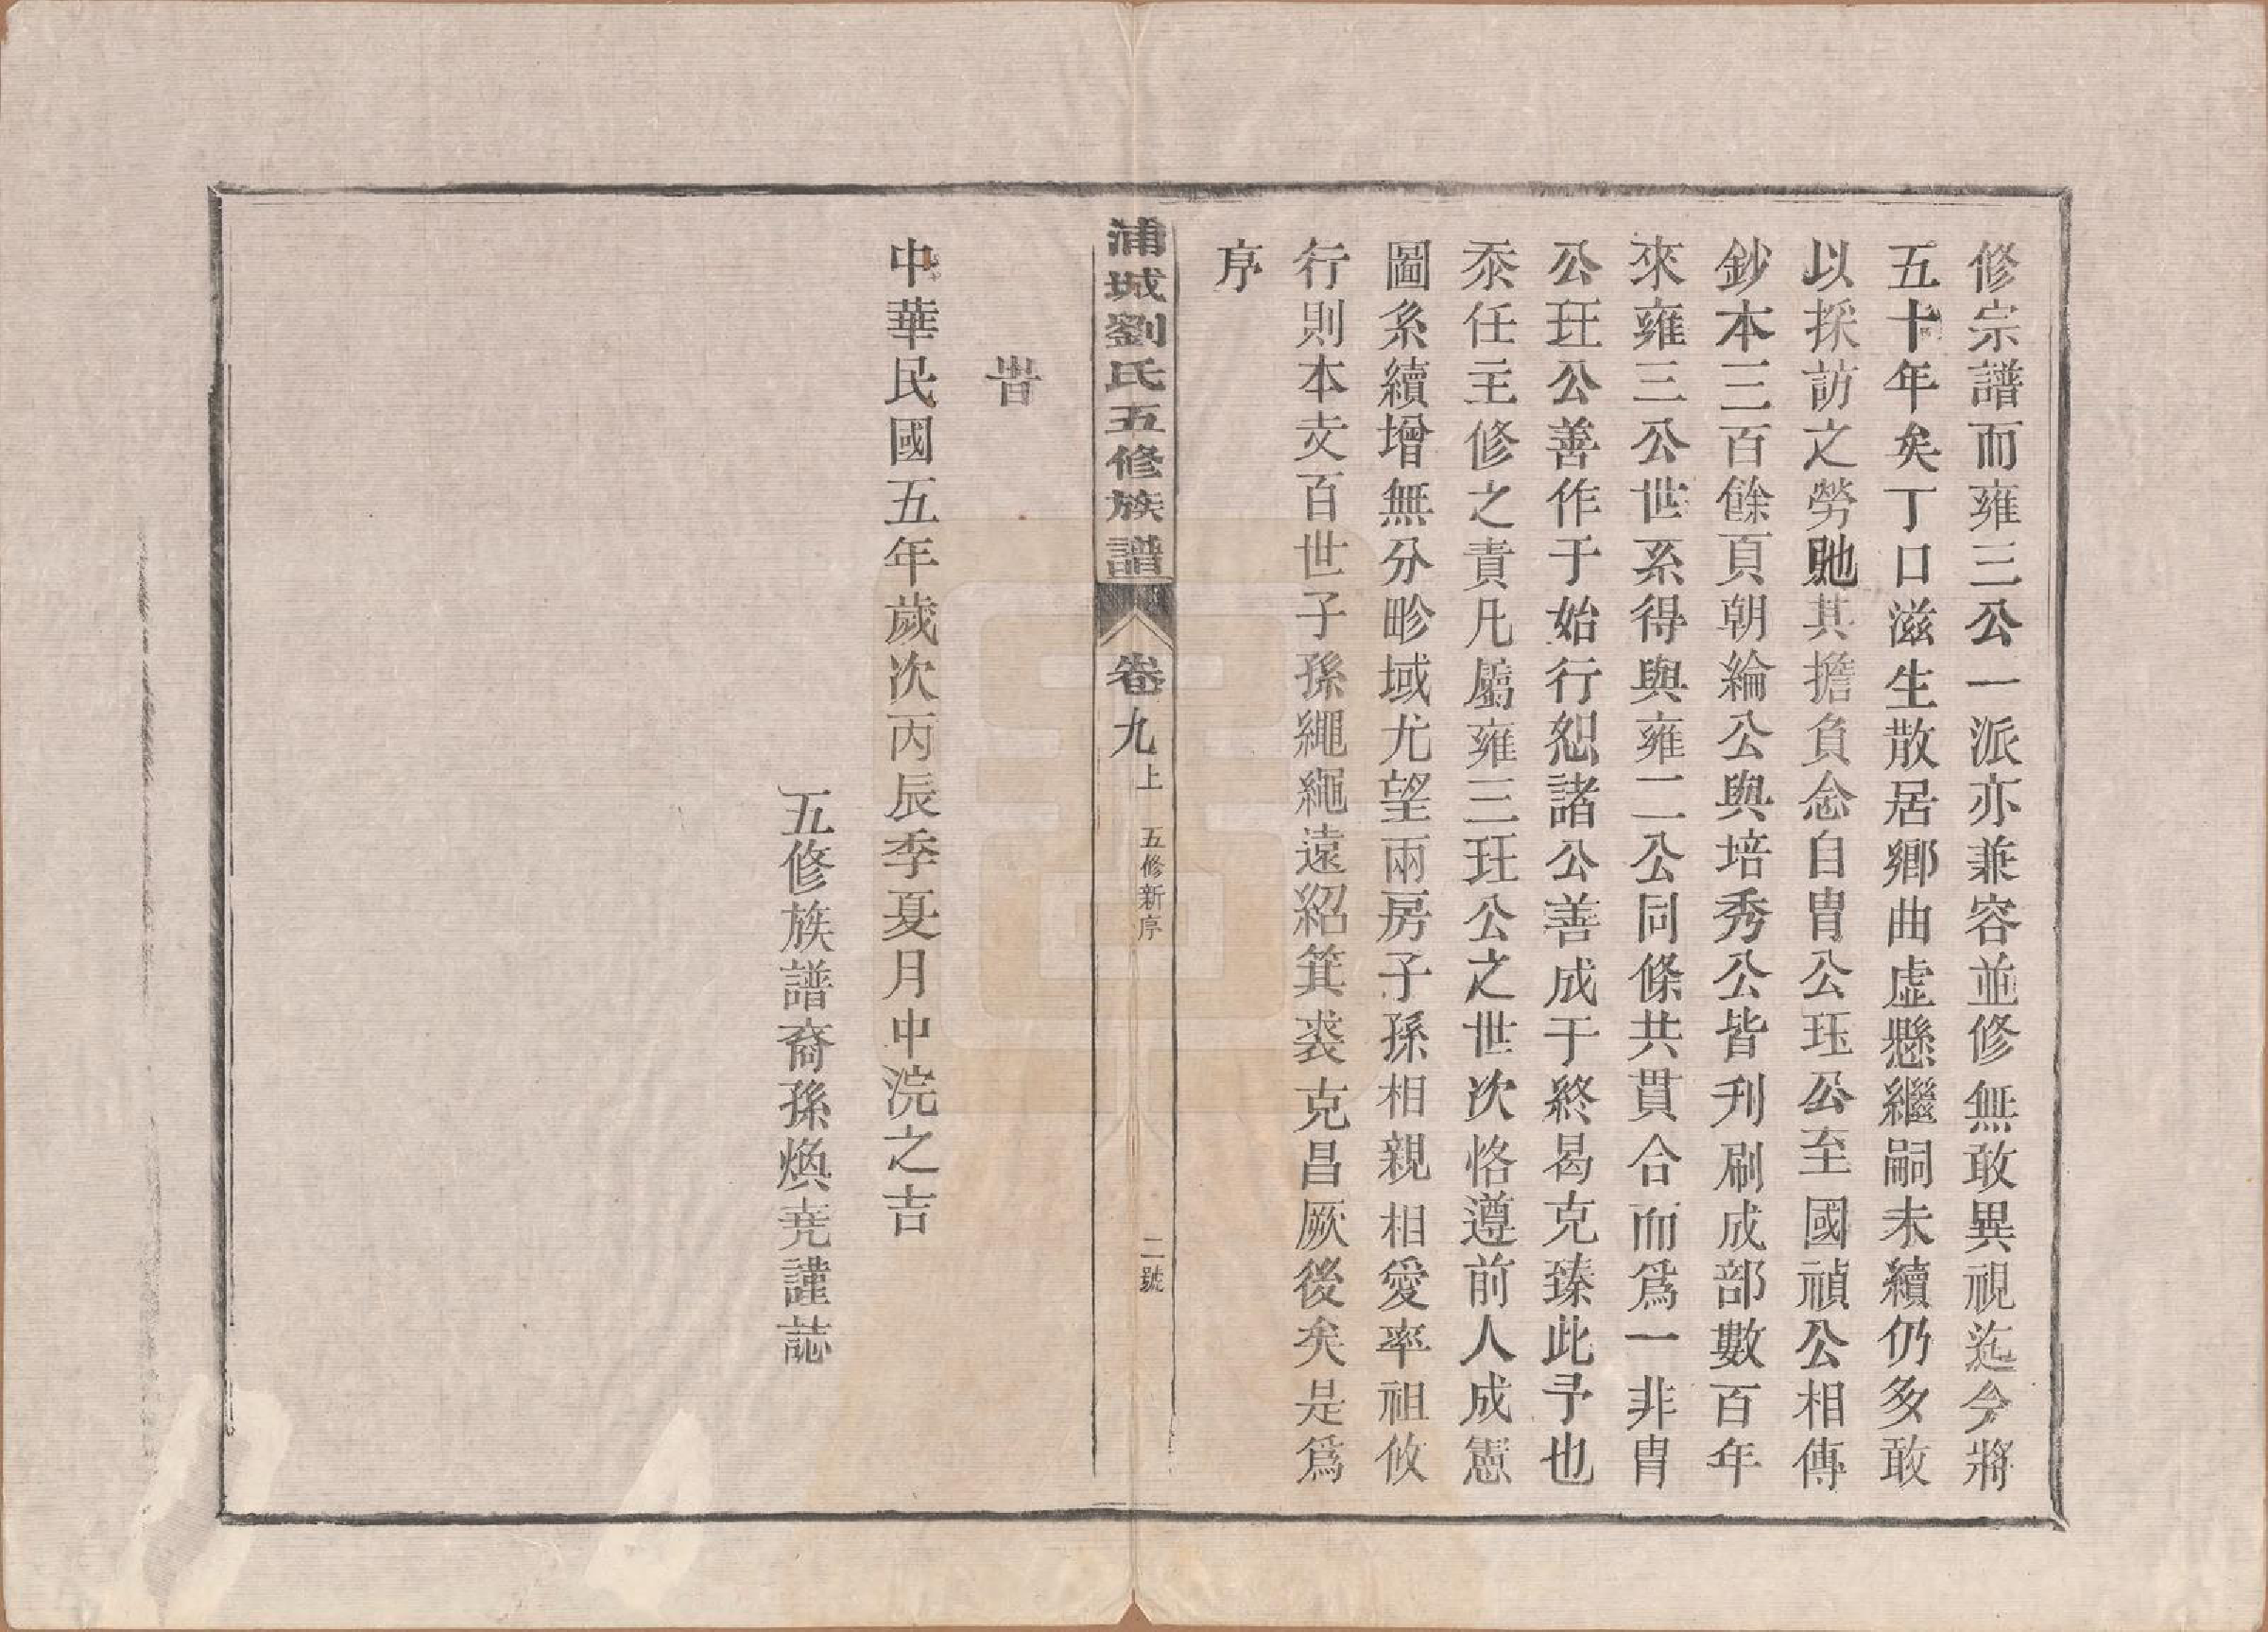 修宗譜而雍三公一派亦兼容並修無敢異視迄今將
五十年矣丁口滋生散居鄉曲虛懸繼嗣未續仍多敢
以採訪之勞貤其擔負念自冑公珏公至國禎公相傳
鈔本三百餘頁朝綸公與培秀公皆刋刷成部數百年
來雍三公世系得與雍二公同條共貫合而爲一非冑
公玨公善作于始行恕諸公善成于終曷克臻此予也
忝任主修之責凡屬雍三玨公之世次恪遵前人成憲
圖系續增無分畛域尤望兩房子孫相親相愛率祖攸
行則本支百世子孫繩繩遠紹箕裘克昌厥後矣是爲
序
浦城劉氏五修族譜 卷九上 五修新序 二號
旹
中華民國五年歲次丙辰季夏月中浣之吉
五修族譜裔孫煥堯謹誌